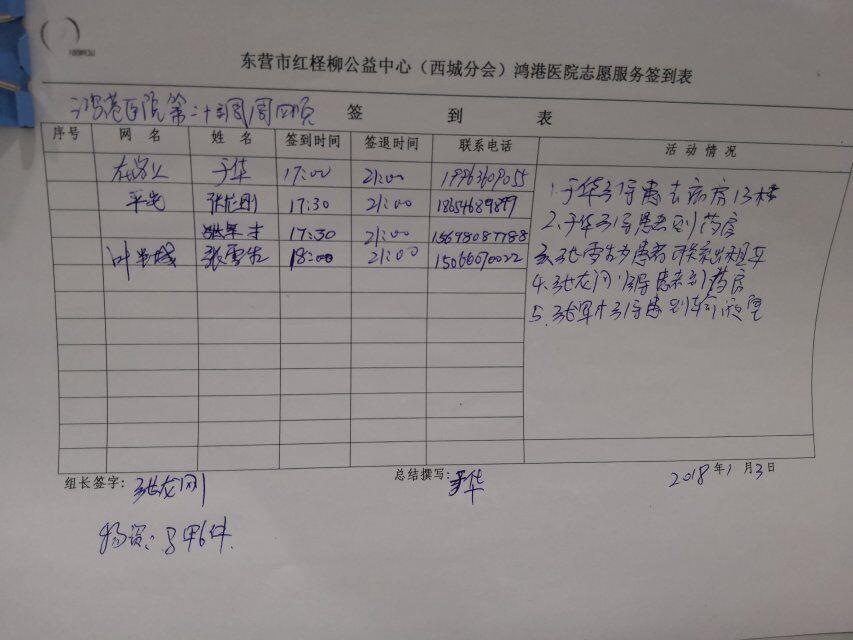 东营市红柽柳公益中心（西城分会）鸿港医院志愿服务签到表
鸿港医院第二十三周周四 签到表
序号 网名 姓名 签到时间 签退时间 联系电话 活动情况
于华 17:00 21:00 19963609055
平光 张龙刚 17:30 21:00
17:30 21:00 15698087788
叶 张雪生 18:00 21:00 15066670022
1.于华引导患去病房13楼
2.于华引导患者到药房
3.张雪生为患者联系出租车
4.张龙刚引导患者到药房
5.张军才引导患到输液室
组长签字：张龙刚 总结撰写：于华 2018年1月3日
物资：马甲6件